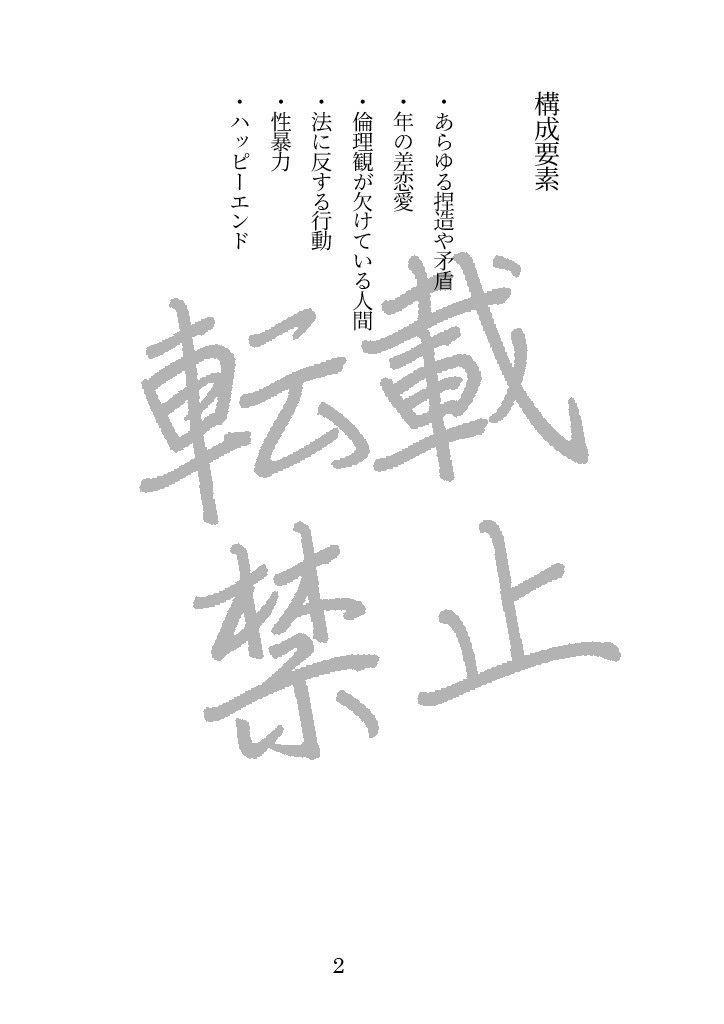 構成要素
・あらゆる捏造や矛盾
・年の差恋愛
・倫理観が欠けている人間
・法に反する行動
・性暴力
・ハッピーエンド
転載
禁止
2